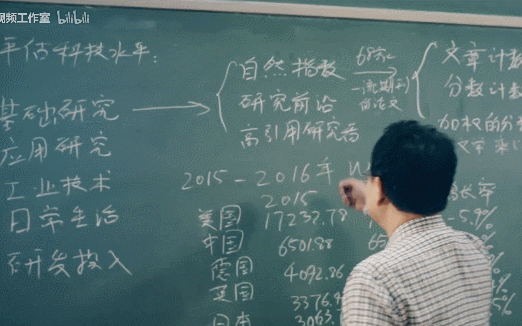 视频工作室 bilibili
评估科技水平：
自然指数
68家
一流期刊
的论文
文章计数
分数计数
基础研究
研究前沿
高引用研究者
应用研究
工业技术
2015-2016年 W
日常生活
2015
长率
美国 17232.78 -5.9%
中国 6501.88 6
研发投入
德国 4092.86
英国 3376.
日本 3063.